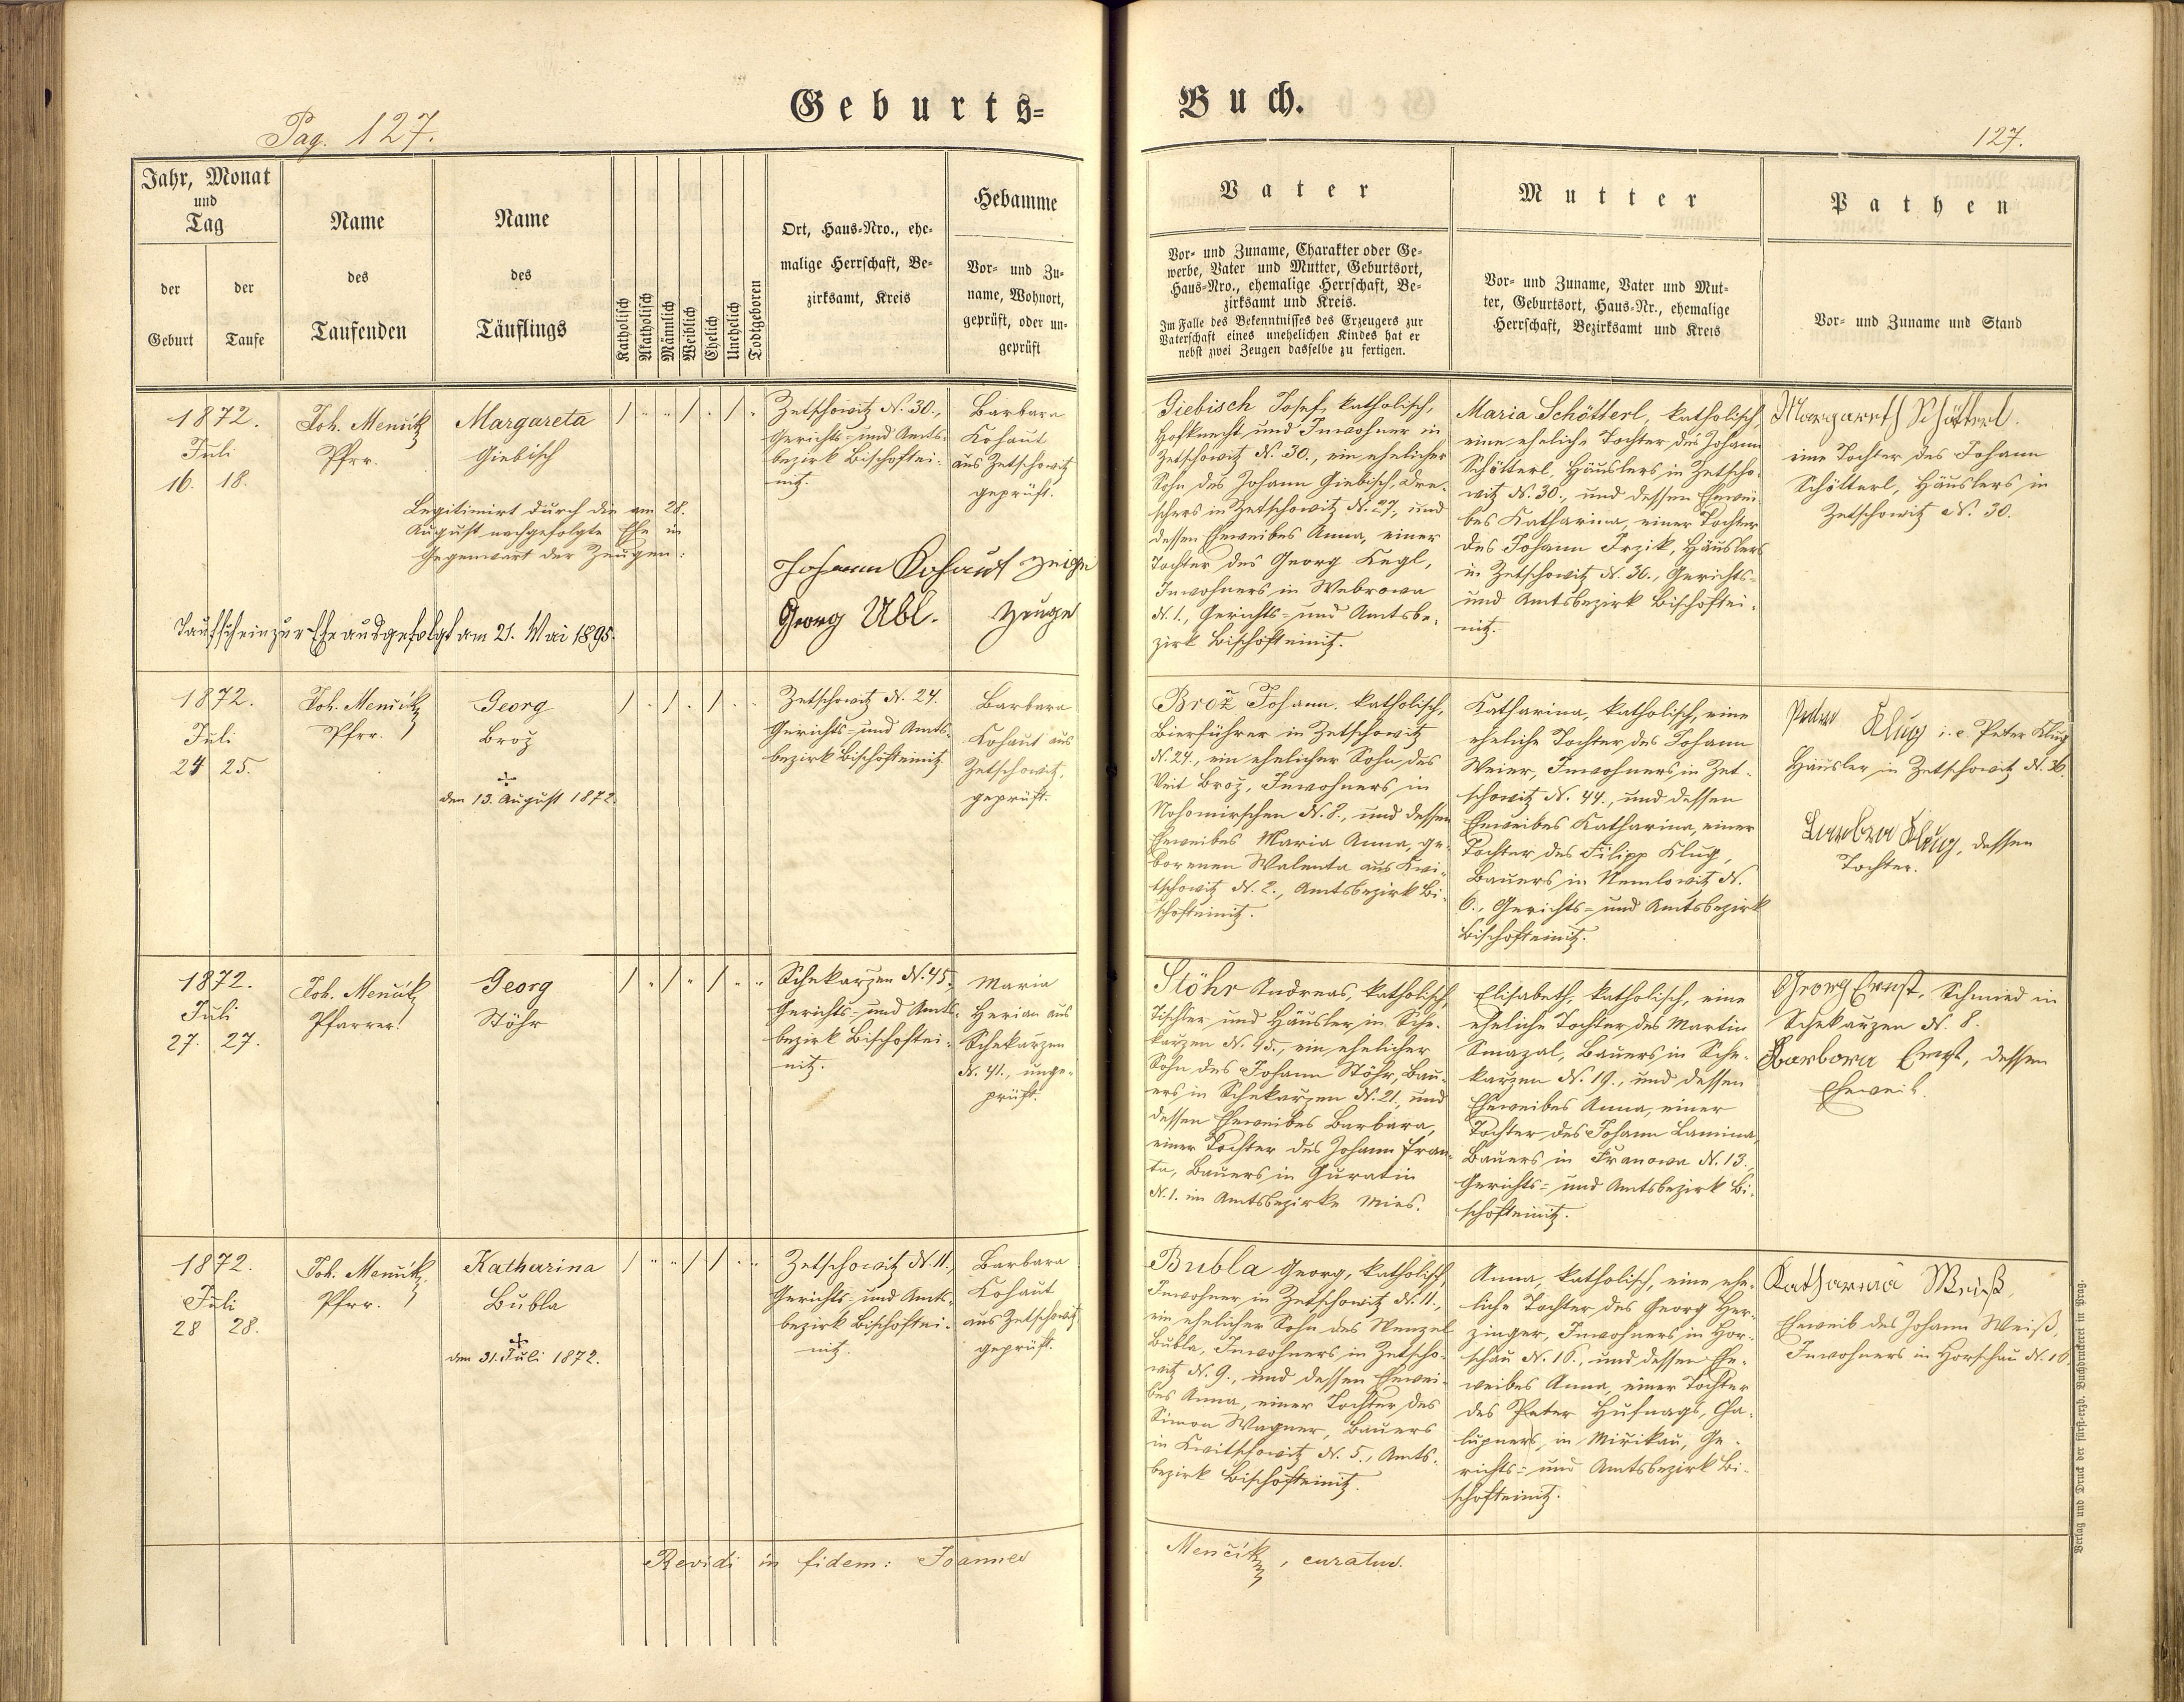 Pag. 127.
Geburts-
Buch.
127.
Jahr, Monat
und
Tag
der
Geburt
der
Taufe
Name
des
Taufenden
Name
des
Täuflings
Katholisch
Akatholisch
Männlich
Weiblich
Ehelich
Unehelich
Todtgeboren
Ort, Haus-Nro., ehe-
malige Herrschaft, Be-
zirksamt, Kreis
Hebamme
Vor- und Zu-
name, Wohnort,
geprüft, oder un-
geprüft
Vater
Vor- und Zuname, Charakter oder Ge-
werbe, Vater und Mutter, Geburtsort,
Haus-Nro., ehemalige Herrschaft, Be-
zirksamt und Kreis.
Im Falle des Bekenntnisses des Erzeugers zur
Vaterschaft eines unehelichen Kindes hat er
nebst zwei Zeugen dasselbe zu fertigen.
Mutter
Vor- und Zuname, Vater und Mut-
ter, Geburtsort, Haus-Nr., ehemalige
Herrschaft, Bezirksamt und Kreis
Pathen
Vor- und Zuname und Stand
1872.
Juli
16. 18.
Joh. Menčik
Pfrr.
Margareta
Giebisch
Legitimirt durch die am 28.
August nachgefolgte Ehe in
Gegenwart der Zeugen:
Taufschein zur Ehe ausgefolgt am 21. Mai 1895.
Zetschowitz N. 30.,
Gerichts- und Amts-
bezirk Bischoftei-
nitz.
Johann Kohaut Zeuge
Georg Übl. Zeuge
Barbara
Kohaut
aus Zetschowitz
geprüft.
Giebisch Josef, katholisch,
Hofknecht und Inwohner in
Zetschowitz N. 30., ein ehelicher
Sohn des Johann Giebisch, Dre-
schers in Zetschowitz N. 27., und
dessen Eheweibes Anna, einer
Tochter des Georg Kegl,
Inwohners in Webrowa
N. 1., Gerichts- und Amtsbe-
zirk Bischofteinitz.
Maria Schötterl, katholisch,
eine eheliche Tochter des Johann
Schötterl, Häuslers in Zetscho-
witz N. 30., und dessen Ehewei-
bes Katharina, einer Tochter
des Johann Irzik, Häuslers
in Zetschowitz N. 36., Gerichts-
und Amtsbezirk Bischoftei-
nitz.
Margareth Schötterl.
eine Tochter des Johann
Schötterl, Häuslers in
Zetschowitz N. 30.
1872.
Juli
24 25.
Joh. Menčik
Pfrr.
Georg
Brož
den 13. August 1872.
Zetschowitz N. 24.
Gerichts- und Amts-
bezirk Bischofteinitz
Barbara
Kohaut aus
Zetschowitz,
geprüft.
Brož Johann, katholisch,
Bierführer in Zetschowitz
N. 24., ein ehelicher Sohn des
Veit Brož, Inwohners in
Nahomirschen N. 8., und dessen
Eheweibes Maria Anna, ge-
borenen Walenta aus Kwi-
tschowitz N. 2., Amtsbezirk Bi-
schofteinitz.
Katharina, katholisch, eine
eheliche Tochter des Johann
Weier, Inwohners in Zet-
schowitz N. 44., und dessen
Eheweibes Katharina, einer
Tochter des Filipp Klug,
Bauers in Nemlowitz N.
6., Gerichts- und Amtsbezirk
Bischofteinitz.
Klug i. e. Peter Klug
Häusler in Zetschowitz N. 36.
Klug, dessen
Tochter.
1872.
Juli
27. 27.
Joh. Menčik
Pfarrer.
Georg
Stöhr
Schekarzen N. 45.,
Gerichts- und Amts-
bezirk Bischoftei-
nitz.
Maria
Herian aus
Schekarzen
N. 41., unge-
prüft.
Stöhr Andreas, katholisch,
Tischler und Häusler in Sche-
karzen N. 45., ein ehelicher
Sohn des Johann Stöhr, Bau-
ers in Schekarzen N. 21. und
dessen Eheweibes Barbara,
einer Tochter des Johann Fran-
ta, Bauers in Guratin
N. 1. im Amtsbezirke Mies.
Elisabeth, katholisch, eine
eheliche Tochter des Martin
Smazal, Bauers in Sche-
karzen N. 19., und dessen
Eheweibes Anna, einer
Tochter des Johann Lamina,
Bauers in Franowa N. 13.,
Gerichts- und Amtsbezirk Bi-
schofteinitz.
Georg Ernst, Schmied in
Schekarzen N. 8.
Barbora Ernst, dessen
Eheweib.
1872.
Juli
28 28.
Joh. Menčik
Pfrr.
Katharina
Bubla
den 31. Juli 1872.
Zetschowitz N. 11.,
Gerichts- und Amts-
bezirk Bischoftei-
nitz.
Barbara
Kohaut
aus Zetschowitz
geprüft.
Bubla Georg, katholisch,
Inwohner in Zetschowitz N. 11.,
ein ehelicher Sohn des Wenzel
Bubla, Inwohners in Zetscho-
witz N. 9., und dessen Ehewei-
bes Anna, einer Tochter des
Simon Wagner, Bauers
in Kwitschowitz N. 5., Amts-
bezirk Bischofteinitz.
Anna, katholisch, eine ehe-
liche Tochter des Georg Her-
zinger, Inwohners in Hor-
schau N. 16., und dessen Ehe-
weibes Anna, einer Tochter
des Peter Hufnagl, Cha-
lupners, in Mirikau, Ge-
richts- und Amtsbezirk Bi-
schofteinitz.
Katharina Weiß,
Eheweib des Johann Weiß,
Inwohners in Horschau N. 16.
Revidi in fidem: Joannes
Menčik, curatus.
Verlag und Druck der fürst-erzb. Buchdruckerei in Prag.